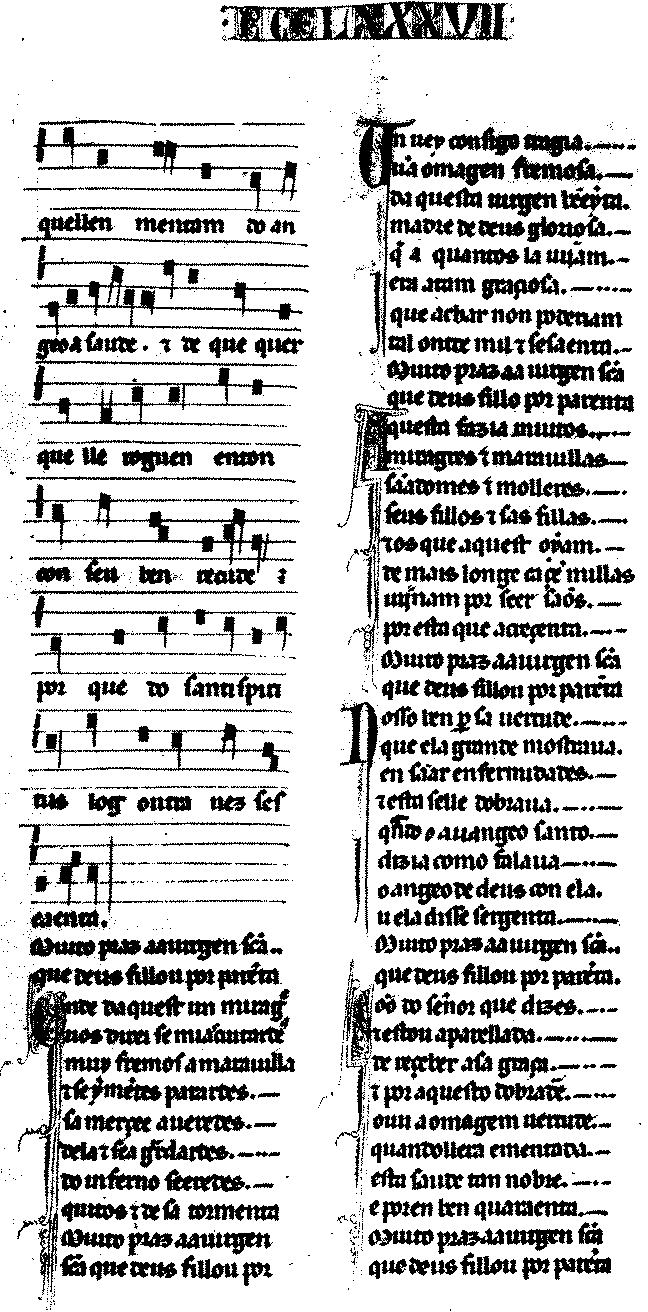 quellen mentam do an
geo a saude. τ de que quer
que lle roguen enton
con seu ben recude τ
por que do santispiri
tus log ontra nez ses
caenta.
Muito praz aa uirgen scã..
que deus fillou por parẽta
nde daquest un mirag̃
uos direi se
muy fremos a marauilla
τ se parardes.—
sa merçee aueredes.—
dela τ
do inferno seeredes.—
quitos τ de sa tormenta
Muito praz aa uirgen
scã que deus fillou por
n rey consigo tragia.—
ũa omagen fremosa.—
da questa uirgen
madre de deus gloriosa.—
q̃ a quantos la uijam.—
era atam graçiosa.—
que achar non poderiam
tal ontre mil τ sesaenta.—
Muito praz aa uirgen scã
que deus fillo por parenta
questa fazia muitos.—
miragres τ marauillas—
sãar omes τ molleres.—
seus fillos τ sas fillas.—
τ os que aquest oyam.—
de mais longe ca çẽ millas
uijnnam por seer sãos.—
por esta que acreçenta.—
Muito praz aa uirgen scã
que deus fillou por parẽta
osso ben ꝑ sa uertude.—
que ela grande mostraua.
en sãar enfermidades.—
τ esta selle dobraua.—
qñdo o auangeo santo.—
dizia como falaua—
o angeo de deus con ela.
u ela disse sergenta.—
Muito praz aa uirgen scã..
que deus fillou por parẽta.
oõ do señor que dizes.—
τ estou aparellada.—
de reçeber a sa graça.—
τ por aquesto dobradẽ.—
ouu a omagem uertude.—
quandolle era ementada.—
esta saude tan nobre.—
e poren ben quaraenta.—
Muito praz aa uirgen scã
que deus fillou por parẽta